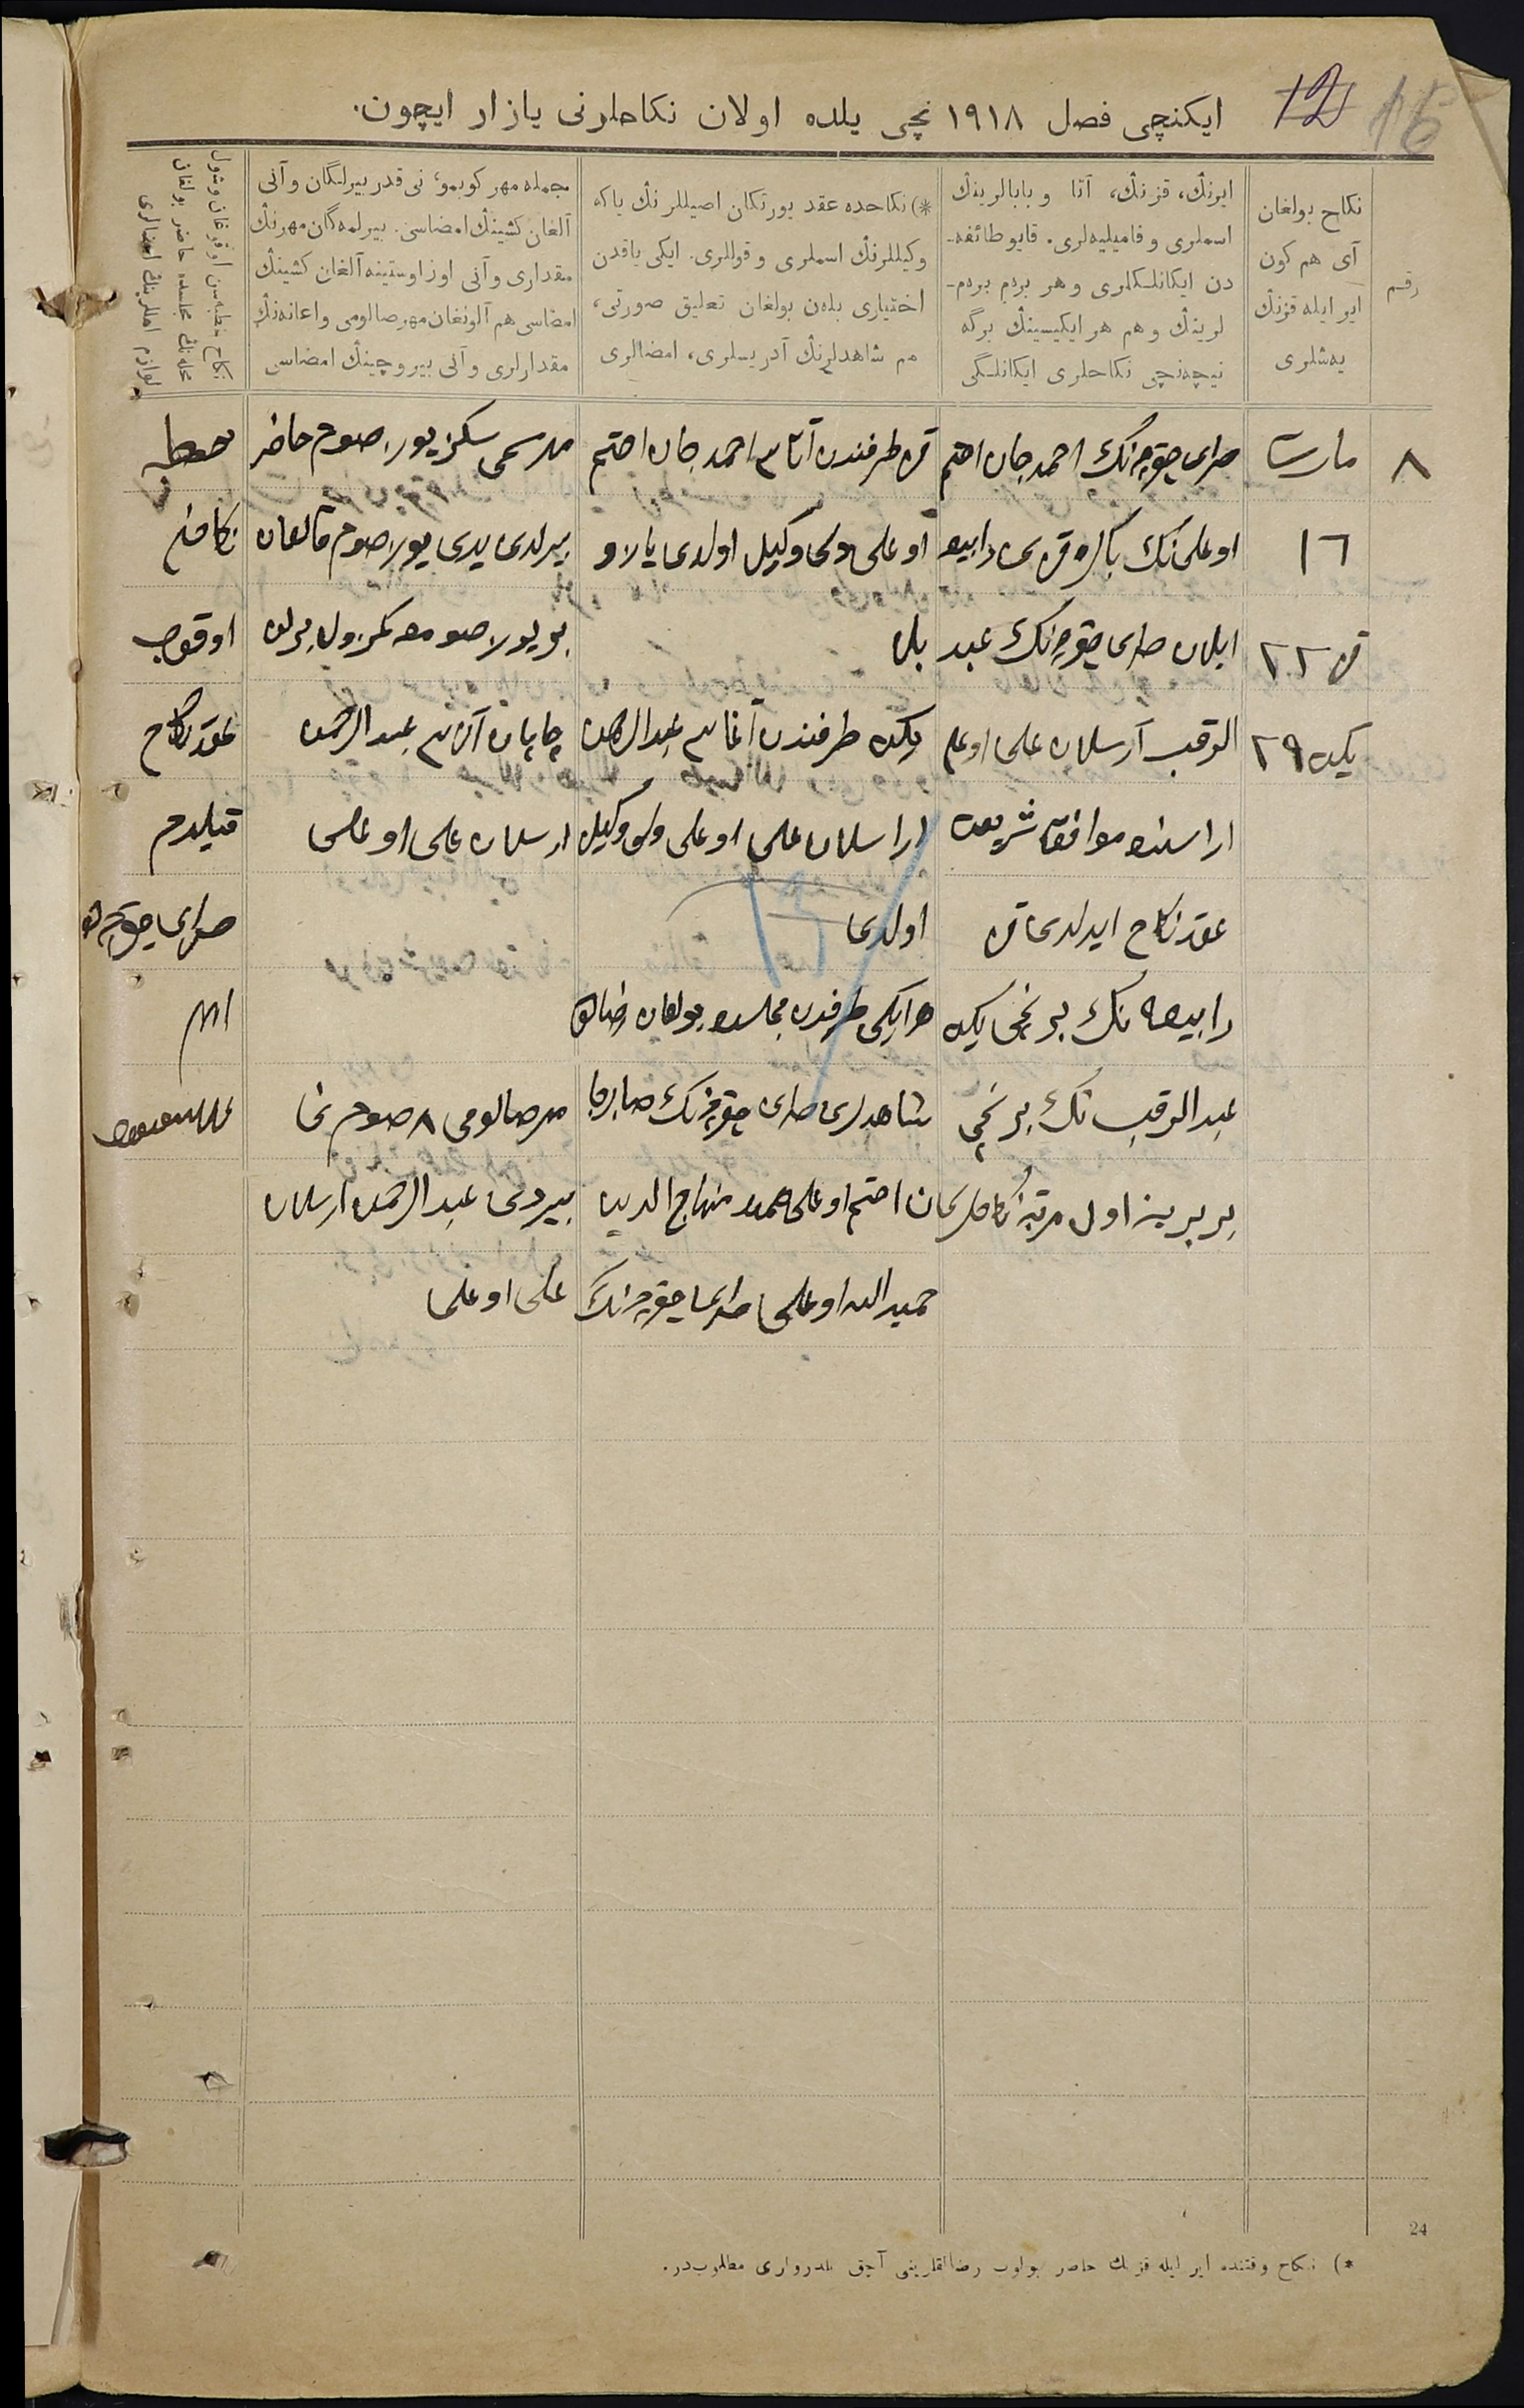 12 16
ايكنچی فصل ١٩١٨ نچی يلده اولان نكاحلرنی يازار ايچون.
رقم
نكاح بولغان
آی هم كون
اير ايله قزنڭ
يه‌شلری
ايرنڭ، قزنڭ، آتا و بابالرينڭ
اسملری و فاميليه‌لری. قايو طائفه-
دن ايكانلكلری و هر بردم بردم-
لرينڭ و هم هر ايكيسينڭ برگه
نيچه‌نچی نكاحلری ايكانلگی
*) نكاحده عقد يورتكان اصيللرنڭ ياكه
وكيللرنڭ اسملری و قوللری. ايكی ياقدن
اختياری بله‌ن بولغان تعليق صورتی،
هم شاهدلرنڭ آدريسلری، امضالری
جمله مهر كوبمو، نی قدر بيرلگان و آنی
آلغان كشينڭ امضاسی. بيرلمه‌گان مهرنڭ
مقداری و آنی اوز اوستينه آلغان كشينڭ
امضاسی هم آلونغان مهر صالومی و اعانه‌نڭ
مقدارلری و آنی بيروچينڭ امضاسی
نكاح خطبه‌سن اوقوغان و شول
محله‌نڭ مجلسده حاضر بولغان
لوازم اهللرينڭ امضالری
٨
مارت
١٦
قز ٢٢
يكت ٢٩
صرای چقورچه‌نڭ احمدجان احتم
اوغلی‌نڭ باكره قزی رابيعه
ايلان صرای چقورچه‌نڭ عبد
الرقيب آرسلان علی اوغلی
اراسنده موافق شريعت
عقد نكاح ايدلدی قز
رابيعه نڭ برنچی يكت
عبدالرقيب نڭ برنچی
بربرينه اول مرتبه نكاحلری
قز طرفندن آتاسی احمدجان احتم
اوغلی ولی وكيل اولدی
يكت طرفندن آغاسی عبدالرحمن
ارسلان علی اوغلی ولی وكيل
اولدی
هر ايكی طرفدن مجلسده بولغان رضالق
شاهدلری صرای چقورچه‌نڭ
جان احتم اوغلی منهاج الدين
حميدالله اوغلی صرای چقورچه‌نڭ
مهر سمی سكز يوز صوم حاضر
بيرلدی يدی يوز صوم قالغان
بر يوز صومغه
چاپان آتاسی عبدالرحمن
ارسلان علی اوغلی
مهر صالومی ٨ صوم نی
بيردی عبدالرحمن ارسلان
علی اوغلی
خطبه
نكاحنی
اوقوب
عقد نكاح
قيلدم
صرای چقورچه
امام
24
*) نكاح وقتنده اير ايله قزنڭ حاضر بولوب رضالقلرينی آچق بلدرولری مطلوب‌در.